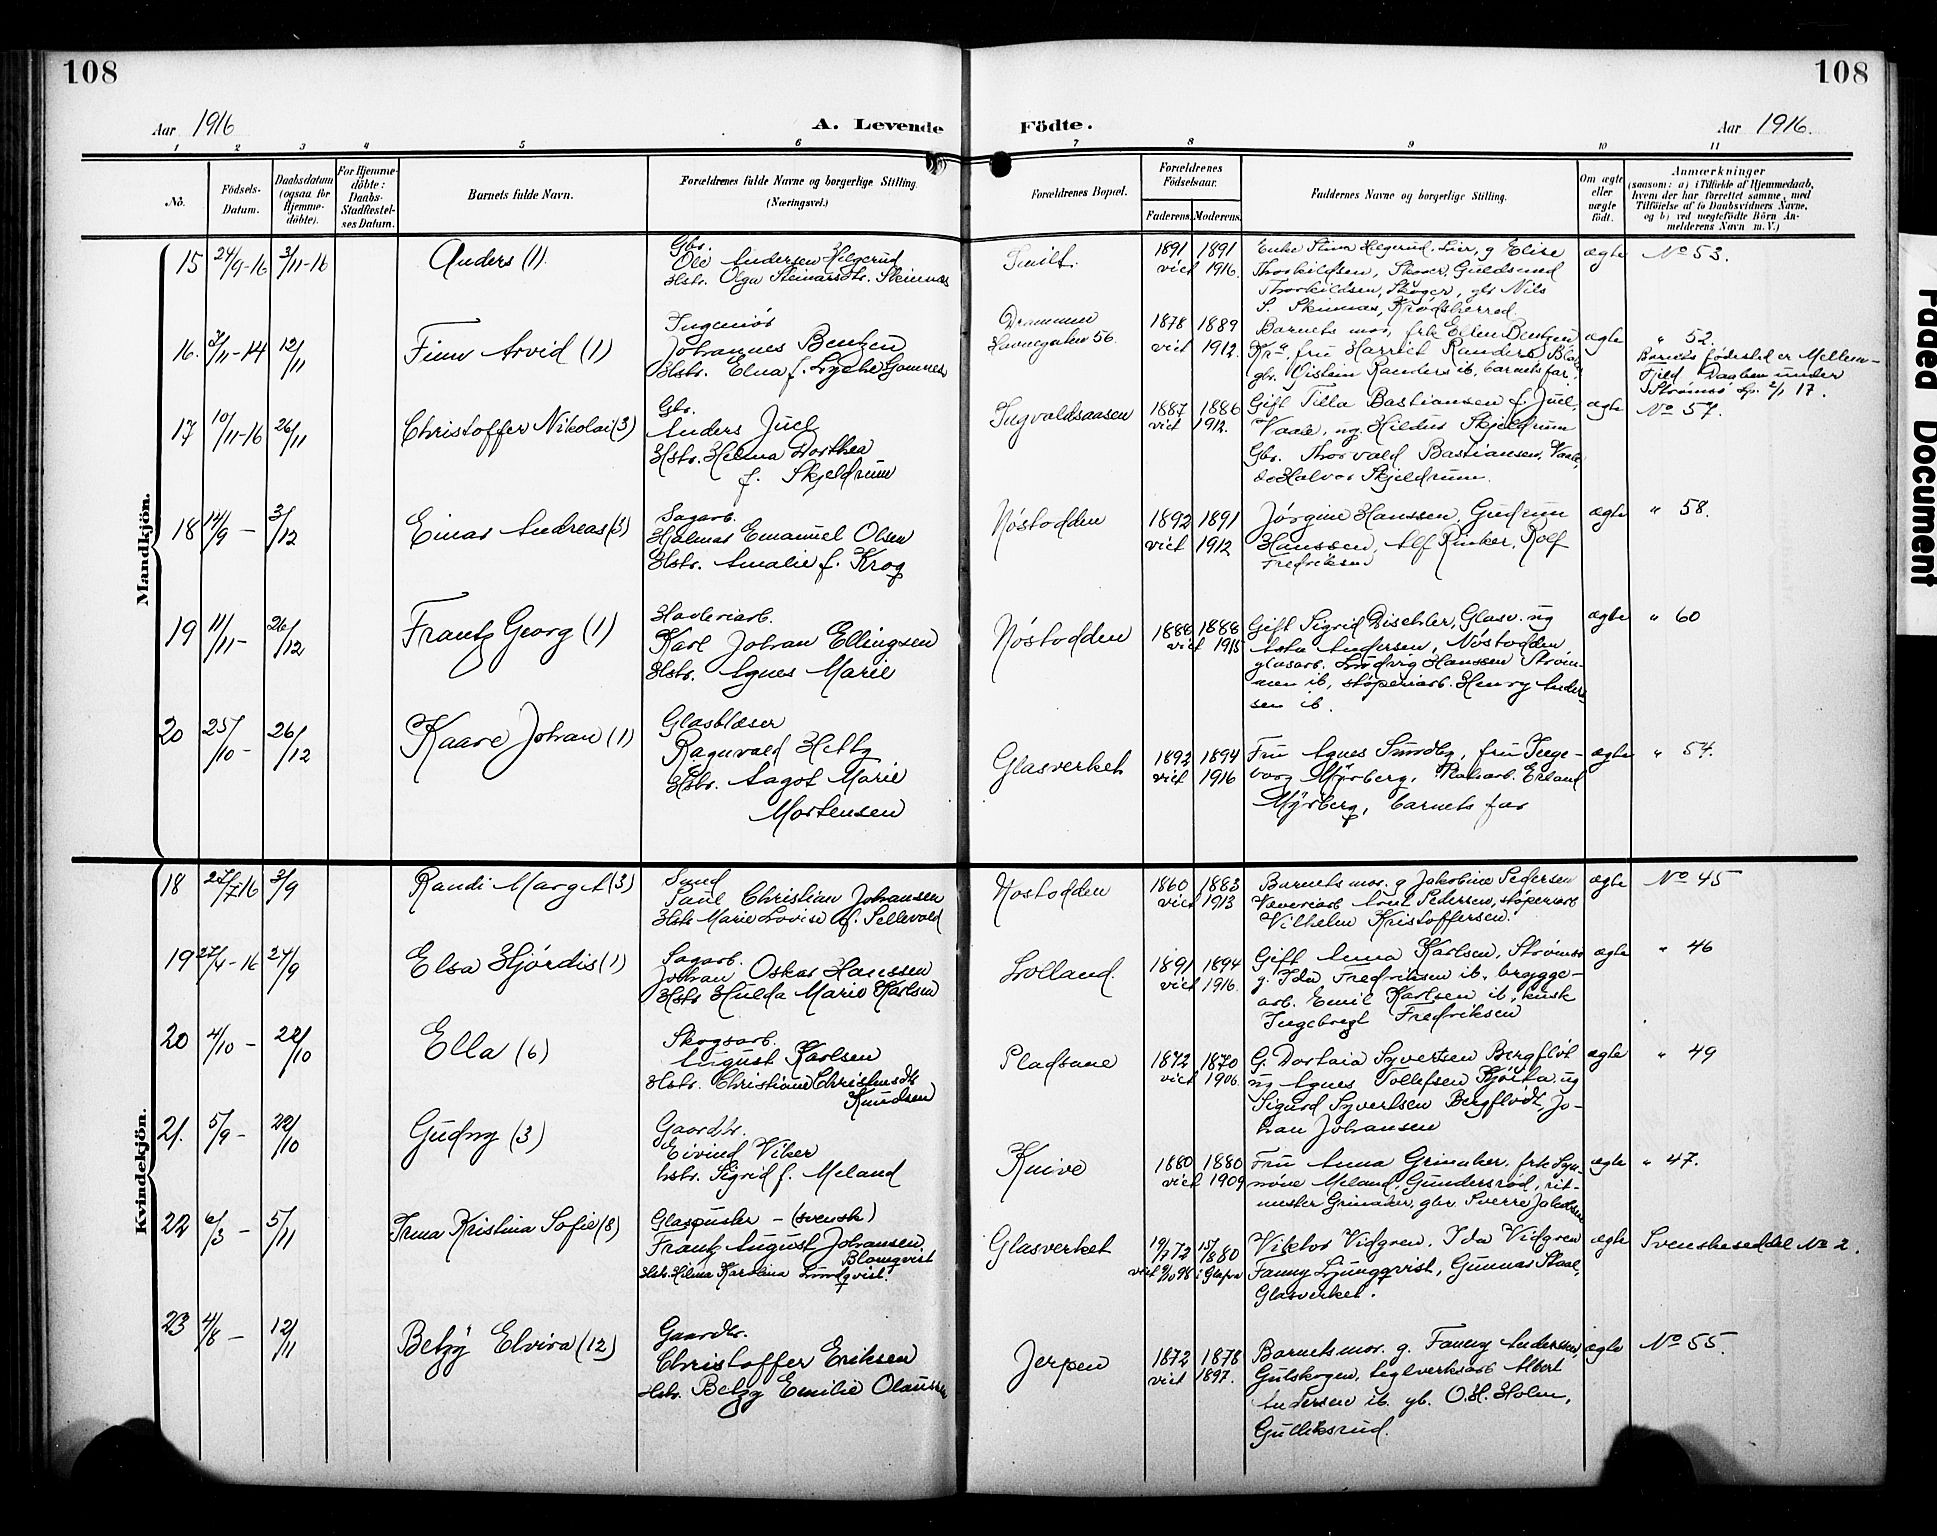 108
108
Aar 1916
A. Levende
Födte.
Aar 1916.
1 2 3 4 5 6 7 8 9 10 11
No.
Födsels-
Datum.
Daabsdatum
(ogsaa for
Hjemme-
döbte).
For Hjemme-
döbte:
Daabs-
Stadfæstel-
ses Datum.
Barnets fulde Navn.
Forældrenes fulde Navne og borgerlige Stilling.
(Næringsvei.)
Forældrenes Bopæl.
Forældrenes
Födselsaar.
Faderens.
Moderens.
Faddernes Navne og borgerlige Stilling.
Om ægte
eller
uægte
födt.
Anmærkninger
(saasom: a) i Tilfælde af Hjemmedaab,
hvem der har forrettet samme, med
Tilföielse af to Daabsvidners Navne,
og b) ved uægtefödte Börn An-
melderens Navn m. V.)
Mandkjön.
15 24/9-16 3/11-16 Anders (1)
Gbr.
Ole Andersen Helgerud
Hstr. Olga Steinarsdtr. Skinnes
1891 1891
viet 1916.
Enke Stina Helgerud, Lier, g Elise
Thorkildsen, Skoger, Guldsmed
Thorkildsen, Skoger, gbr Nils
S. Skinnes, Krødsherred
ægte No 53.
16. 3/11-14 12/11 Finn Arvid (1)
Ingeniør
Johannes Bentzen
Hstr. Elna f. Lyche Gomnes
Drammen
Havnegaten 56.
1878 1889
viet 1912.
Barnets mor, frk Ellen Bentzen
Kr.a, fru Harriet Randers
gbr. Øistein Randers ib, barnets far.
ægte " 52.
Barnets fødested er Mellem-
fjeld Daaben under
Strømsø 2/1 17.
17 10/11-16 26/11 Christoffer Nikolai (3)
Gbr.
Anders Juel
Hstr. Helma Dorthea
f. Skjeldrum
Ingvaldsaasen
1887 1886
viet 1912.
Gift Tilla Bastiansen f. Juel,
Vaale, ug. Hildur Skjeldrum
Gbr. Thorvald Bastiansen, Vaale,
do Halvor Skjeldrum.
ægte No 57.
18 14/9 - 3/12 Einar Andreas (3)
Sagarb.
Halmar Emanuel Olsen
Hstr. Amalie f. Krog
Nøstodden
1892 1891
viet 1912
Jørgine Hanssen, Gudrun
Hanssen, Alf Rinker, Rolf
Fredriksen
ægte " 58.
19 11/11- 26/12 Frantz Georg (1)
Karl Johan Ellingsen
Hstr. Agnes Marie
Nøstodden
1886 1886
viet 1915
Gift Sigrid Dischler, Glasv. ug
Asta Andersen, Nøstodden,
glasarb. Ludvig Hanssen Strøm-
men ib, støperiarb. Henry Ander-
sen ib.
ægte " 60
20 25/10 - 26/12 Kaare Johan (1)
Glasblæser
Ragnvald Hetty
Hstr. Aagot Marie
Mortensen
Glasverket
1892 1894
viet 1916
Fru Agnes Sundby, fru Inge-
borg Myrberg, Erland
Myrberg, barnets far
ægte " 54.
Kvindekjön.
18 27/7-16 3/9 Randi Margit (3)
Smed
Paul Christian Johansen
Hstr Marie Lovise f. Sellevold
Nøstodden
1860 1883
viet 1913
Barnets mor. g Jakobine Pedersen
Væveriarb Arnt Pedersen, støperiarb
Vilhelm Kristoffersen.
ægte No 45
19 27/4-16 24/9 Elsa Hjørdis (1)
Sagarb.
Johan Oskar Hanssen
Hstr Hulda Marie Karlsen
Lolland.
1891 1894
viet 1916.
Gift Anna Karlsen, Strømsø
g. Ida Fredriksen ib. brygge-
arb. Emil Karlsen ib, kusk
Ingebregt Fredriksen
ægte " 46
20 4/10 - 22/10 Ella (6)
Skogsarb.
August Karlsen
Hstr. Christiane Christensdtr
Knudsen
Pladsene
1872 1870
viet 1906.
G. Dortæa Syvertsen Bergflöt
ug Agnes Tollefsen Kjösta, ug
Sigurd Syvertsen Bergflödt, Jo-
han Johansen
ægte " 49
21. 5/9 - 22/10 Gudny (3)
Gaardbr.
Eivind Viker
hstr. Sigrid f. Meland
Knive
1880 1880
viet 1909
Fru Anna Grimaker. frk Syn-
növe Meland, Gundersrød, rit-
mester Grimaker, gbr Sverre Jakobsen
ægte " 47.
22 6/3 - 5/11 Irma Kristina Sofie (8)
Glaspuster - (svensk)
Frantz August Johansen
Blomqvist
Hstr. Hilma Karolina Lundqvist.
Glasverket
19/7 72 15/8 80
viet 9/10 98 i Glava
Viktor Vidgren, Ida Vidgren
Fanny Ljungqvist, Gunnar Staal,
Glasverket.
ægte Svenskeseddel No 2.
23 4/8 - 12/11 Betzy Elvira (12)
Gaardbr.
Christoffer Eriksen
Hstr. Betzy Emilie Olaussen
Jerpen
1872 1878
viet 1897.
Barnets mor. g. Fanny Andersen,
Gulskogen, teglverksarb Albert
Andersen ib. gb. O.H. Holm,
Gulliksrud.
ægte No 55.
Faded Document